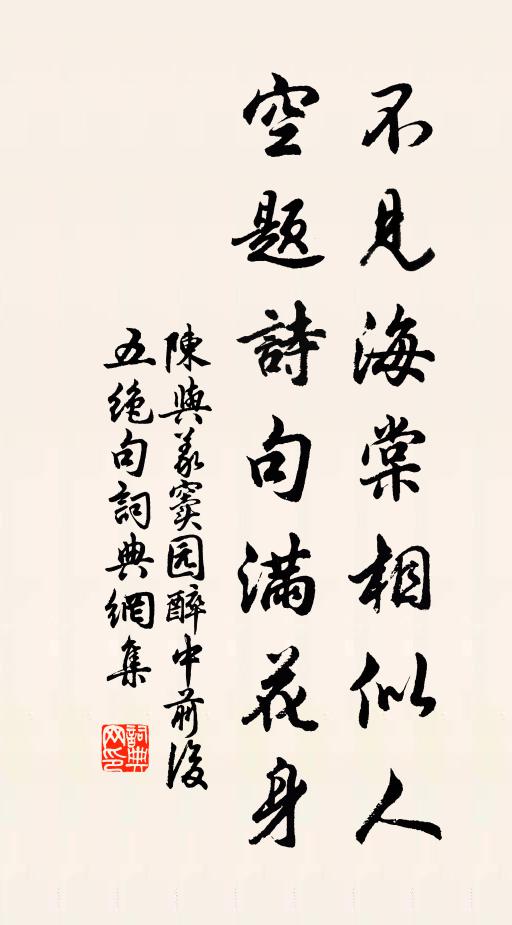 不見海棠相似人
空題詩句滿花身
陳與義竇园醉中前後
五絶句詞典網集
詞典
网印